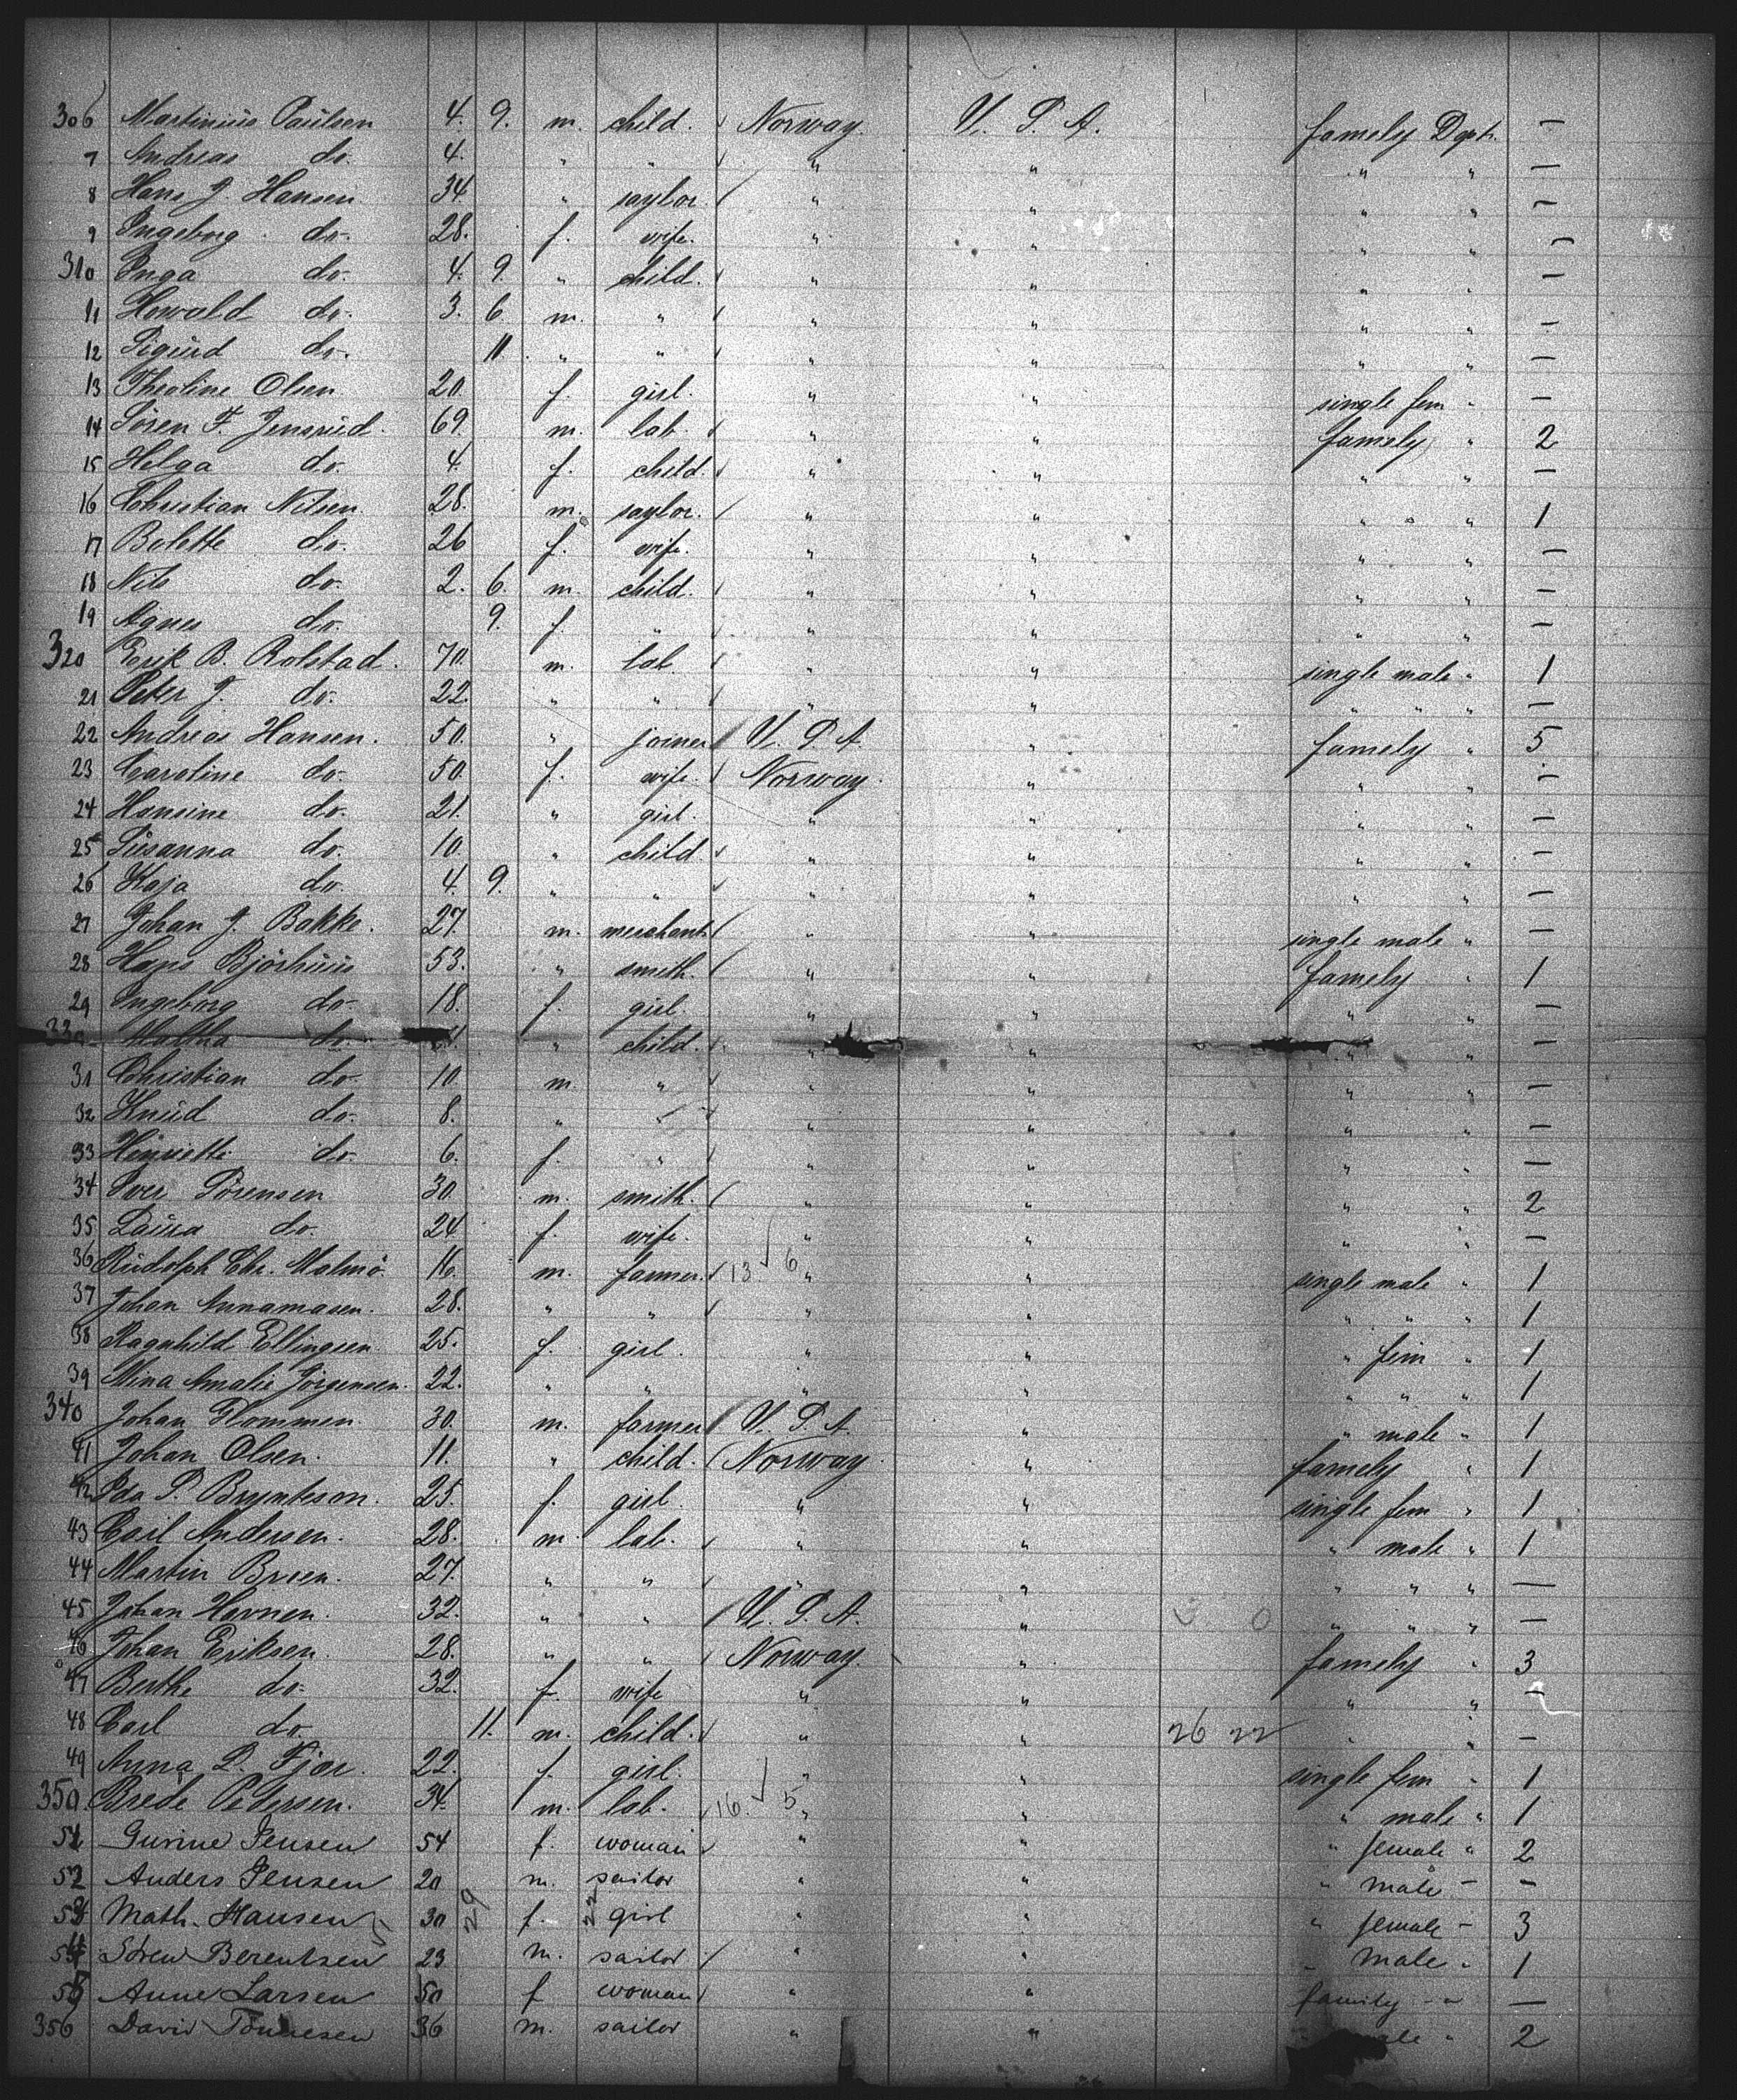 306 Martinius Paulsen 4. 9. m. child. Norway. U. S. A. famely Dept. —
7 Andreas do. 4. " " " " " " —
8 Hans J. Hansen 34. " saylor. " " " " —
9 Ingeborg do. 28. f. wife. " " " " —
310 Inga do. 4. 9. " child. " " " " —
11 Howald do. 3. 6. m. " " " " " —
12 Sigurd do. 11. " " " " " " —
13 Theoline Olsen 20. f. girl. " " single fem " —
14 Sören F. Jensrud. 69. m. lab. " " famely " 2
15 Helga do. 4. f. child. " " " " —
16 Christian Nilsen. 28. m. saylor. " " " " 1
17 Bolette do. 26 f. wife. " " " " —
18 Nils do. 2. 6. m. child. " " " " —
19 Agnes do. 9. f. " " " " " —
320 Erik B. Rolstad. 70. m. lab. " " single male " 1
21 Peter J. do. 22. " " " " " " " —
22 Andreas Hansen. 50. " joiner U. S. A. " famely " 5
23 Caroline do. 50. f. wife. Norway. " " " —
24 Hansine do. 21. " girl. " " " " —
25 Susanna do. 10. " child. " " " " —
26 Kaja do. 4. 9. " " " " " " —
27 Johan J. Bakke. 27. m. merchant " " single male " —
28 Hans Björhuus 53. " smith. " " famely " 1
29 Ingeborg do. 18. f. girl. " " " " —
330 do. " child. " " " " —
31 Christian do. 10. m. " " " " " —
32 Knud do. 8. " " " " " " —
33 Henriette do. 6. f. " " " " " —
34 Iver Sörensen 30. m. smith. " " " " 2
35 Laura do. 24 f. wife. " " " " —
36 Rudolph Chr. Malmö. 16. m. farmer. 13 6 " " single male " 1
37 Johan Annamasen. 28. " " " " " " " 1
38 Ragnhild Ellingsen 25. f. girl. " " " fem " 1
39 Mina Amalie Jörgensen. 22. " " " " " " " 1
340 Johan Flommen 30. m. farmer U. S. A. " " male " 1
41 Johan Olsen. 11. " child. Norway. " famely " 1
42 Ida S. Brynteson. 25. f. girl. " " single fem " 1
43 Carl Andersen. 28. m. lab. " " " male " 1
44 Martin Breen. 27. " " " " " " " —
45 Johan Havnen. 32. " " U. S. A. " " " " —
46 Johan Eriksen. 28. " " Norway. " famely " 3
47 Berthe do. 32. f. wife " " " " —
48 Carl do. 11. m. child. " " 26 22 " " —
49 Anna L. Fjar. 22. f. girl. " " single fem " 1
350 Brede Pedersen. 34. m. lab. 16. 5 " " " male " 1
51 Gurine Jensen 54 f. woman " " " female " 2
52 Anders Jensen 20 m. sailor " " " male " —
53 Math. Hansen 30 29 f. 22 girl " " " female " 3
54 Sören Berentsen 23 m. sailor " " " male " 1
55 Anne Larsen 50 f woman " " family " —
356 David Tönnesen 36 m. sailor " " " 2